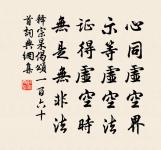 心同虛空界
示等虛空法
證得虛空時
無是無非法
釋宗杲偈頌一百六十
首詞典網集